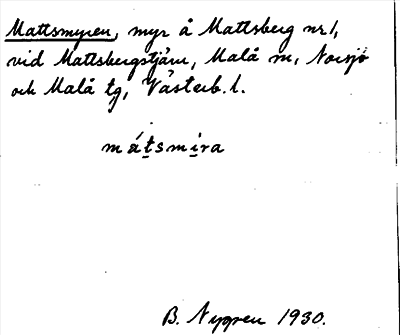 Mattsmyren, myr å Mattsberg nr 1,
vid Mattsbergstjärn, Malå sn, Norsjö
och Malå tg, Västerb. l.
mátsmira
B. Nygren 1930.